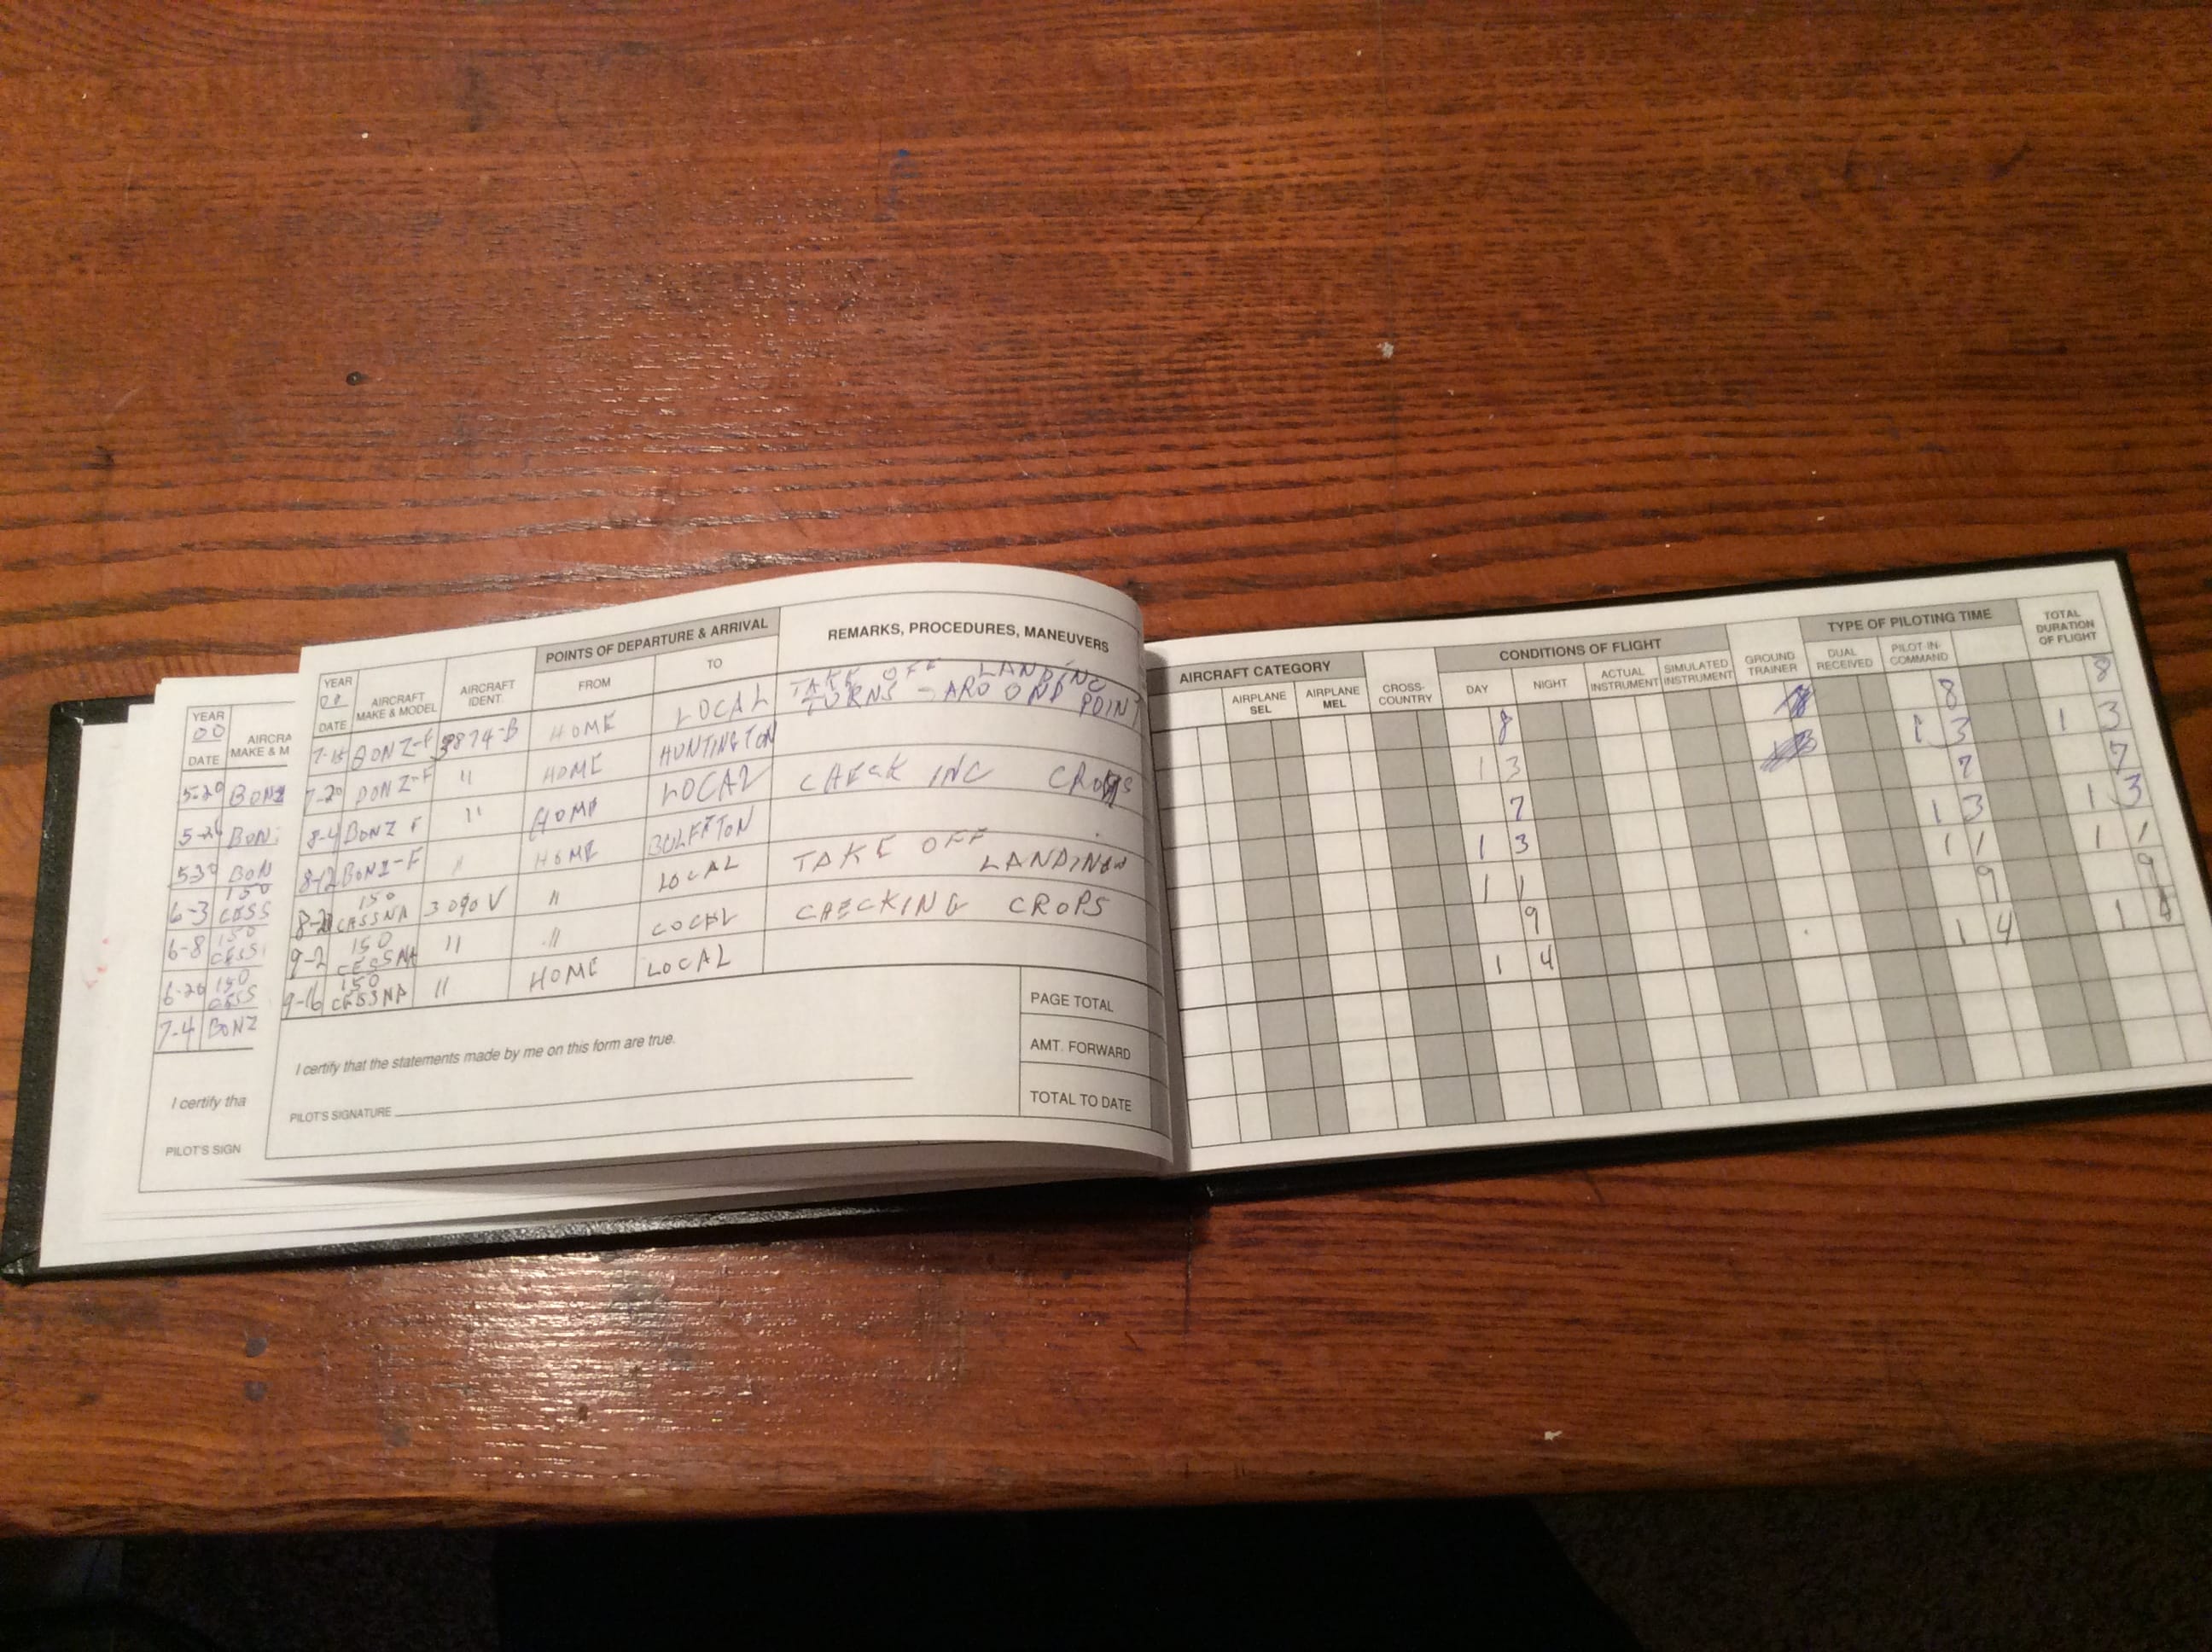 YEAR
00
DATE
AIRCRA
MAKE & M
5-20 BONZ
5-26 BON
530 BON
6-3 150 CESS
6-8 150 CESS
6-26 150 CESS
7-4 BONZ
I certify tha
PILOT'S SIGN
YEAR
DATE
AIRCRAFT
MAKE & MODEL
AIRCRAFT
IDENT.
POINTS OF DEPARTURE & ARRIVAL
FROM
TO
REMARKS, PROCEDURES, MANEUVERS
7-15 BONZ-F 3874-B HOME LOCAL TAKE OFF LANDING
TURNS - AROUND POINT
7-20 BONZ-F " HOME HUNTINGTON
8-4 BONZ F " HOME LOCAL CHECK INC CROPS
8-12 BONZ-F " HOME
150
CESSNA 3090V " LOCAL TAKE OFF
LANDING
9-2 150
CESSNA " " LOCAL CHECKING CROPS
9-16 150
CESSNA " HOME LOCAL
I certify that the statements made by me on this form are true.
PILOT'S SIGNATURE
PAGE TOTAL
AMT. FORWARD
TOTAL TO DATE
AIRCRAFT CATEGORY
AIRPLANE
SEL
AIRPLANE
MEL
CROSS-
COUNTRY
CONDITIONS OF FLIGHT
DAY
NIGHT
ACTUAL
INSTRUMENT
SIMULATED
INSTRUMENT
GROUND
TRAINER
TYPE OF PILOTING TIME
DUAL
RECEIVED
PILOT-IN-
COMMAND
TOTAL
DURATION
OF FLIGHT
8 8 8
1 3 1 3 1 3
7 7 7
1 3 1 3 1 3
1 1 1 1 1 1
9 9 9
1 4 1 4 1